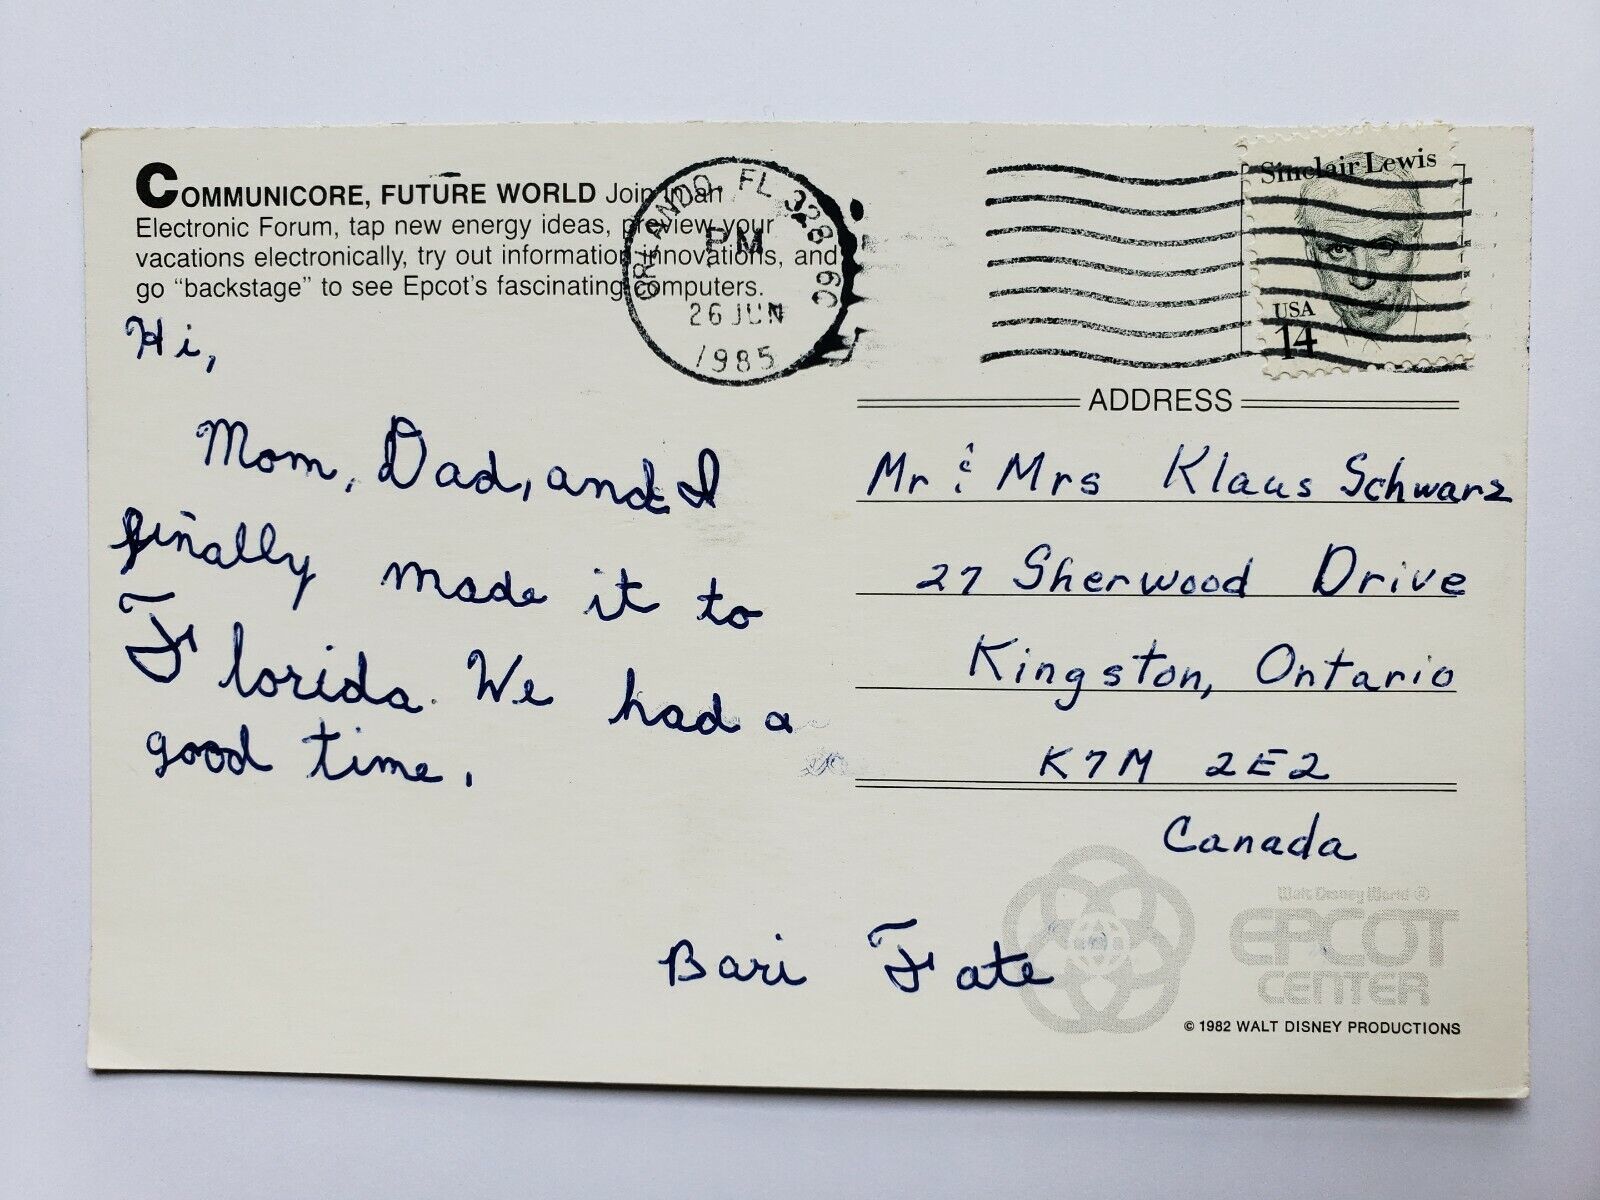 COMMUNICORE, FUTURE WORLD Join in an
Electronic Forum, tap new energy ideas, preview your
vacations electronically, try out information innovations, and
go "backstage" to see Epcot's fascinating computers.
ORLANDO, FL 328
PM
26 JUN
1985
Sinclair Lewis
USA
14
Hi,
Mom, Dad, and I
finally made it to
Florida. We had a
good time.
Bari Fate
ADDRESS
Mr & Mrs Klaus Schwarz
27 Sherwood Drive
Kingston, Ontario
K7M 2E2
Canada
Walt Disney World ®
EPCOT
CENTER
© 1982 WALT DISNEY PRODUCTIONS